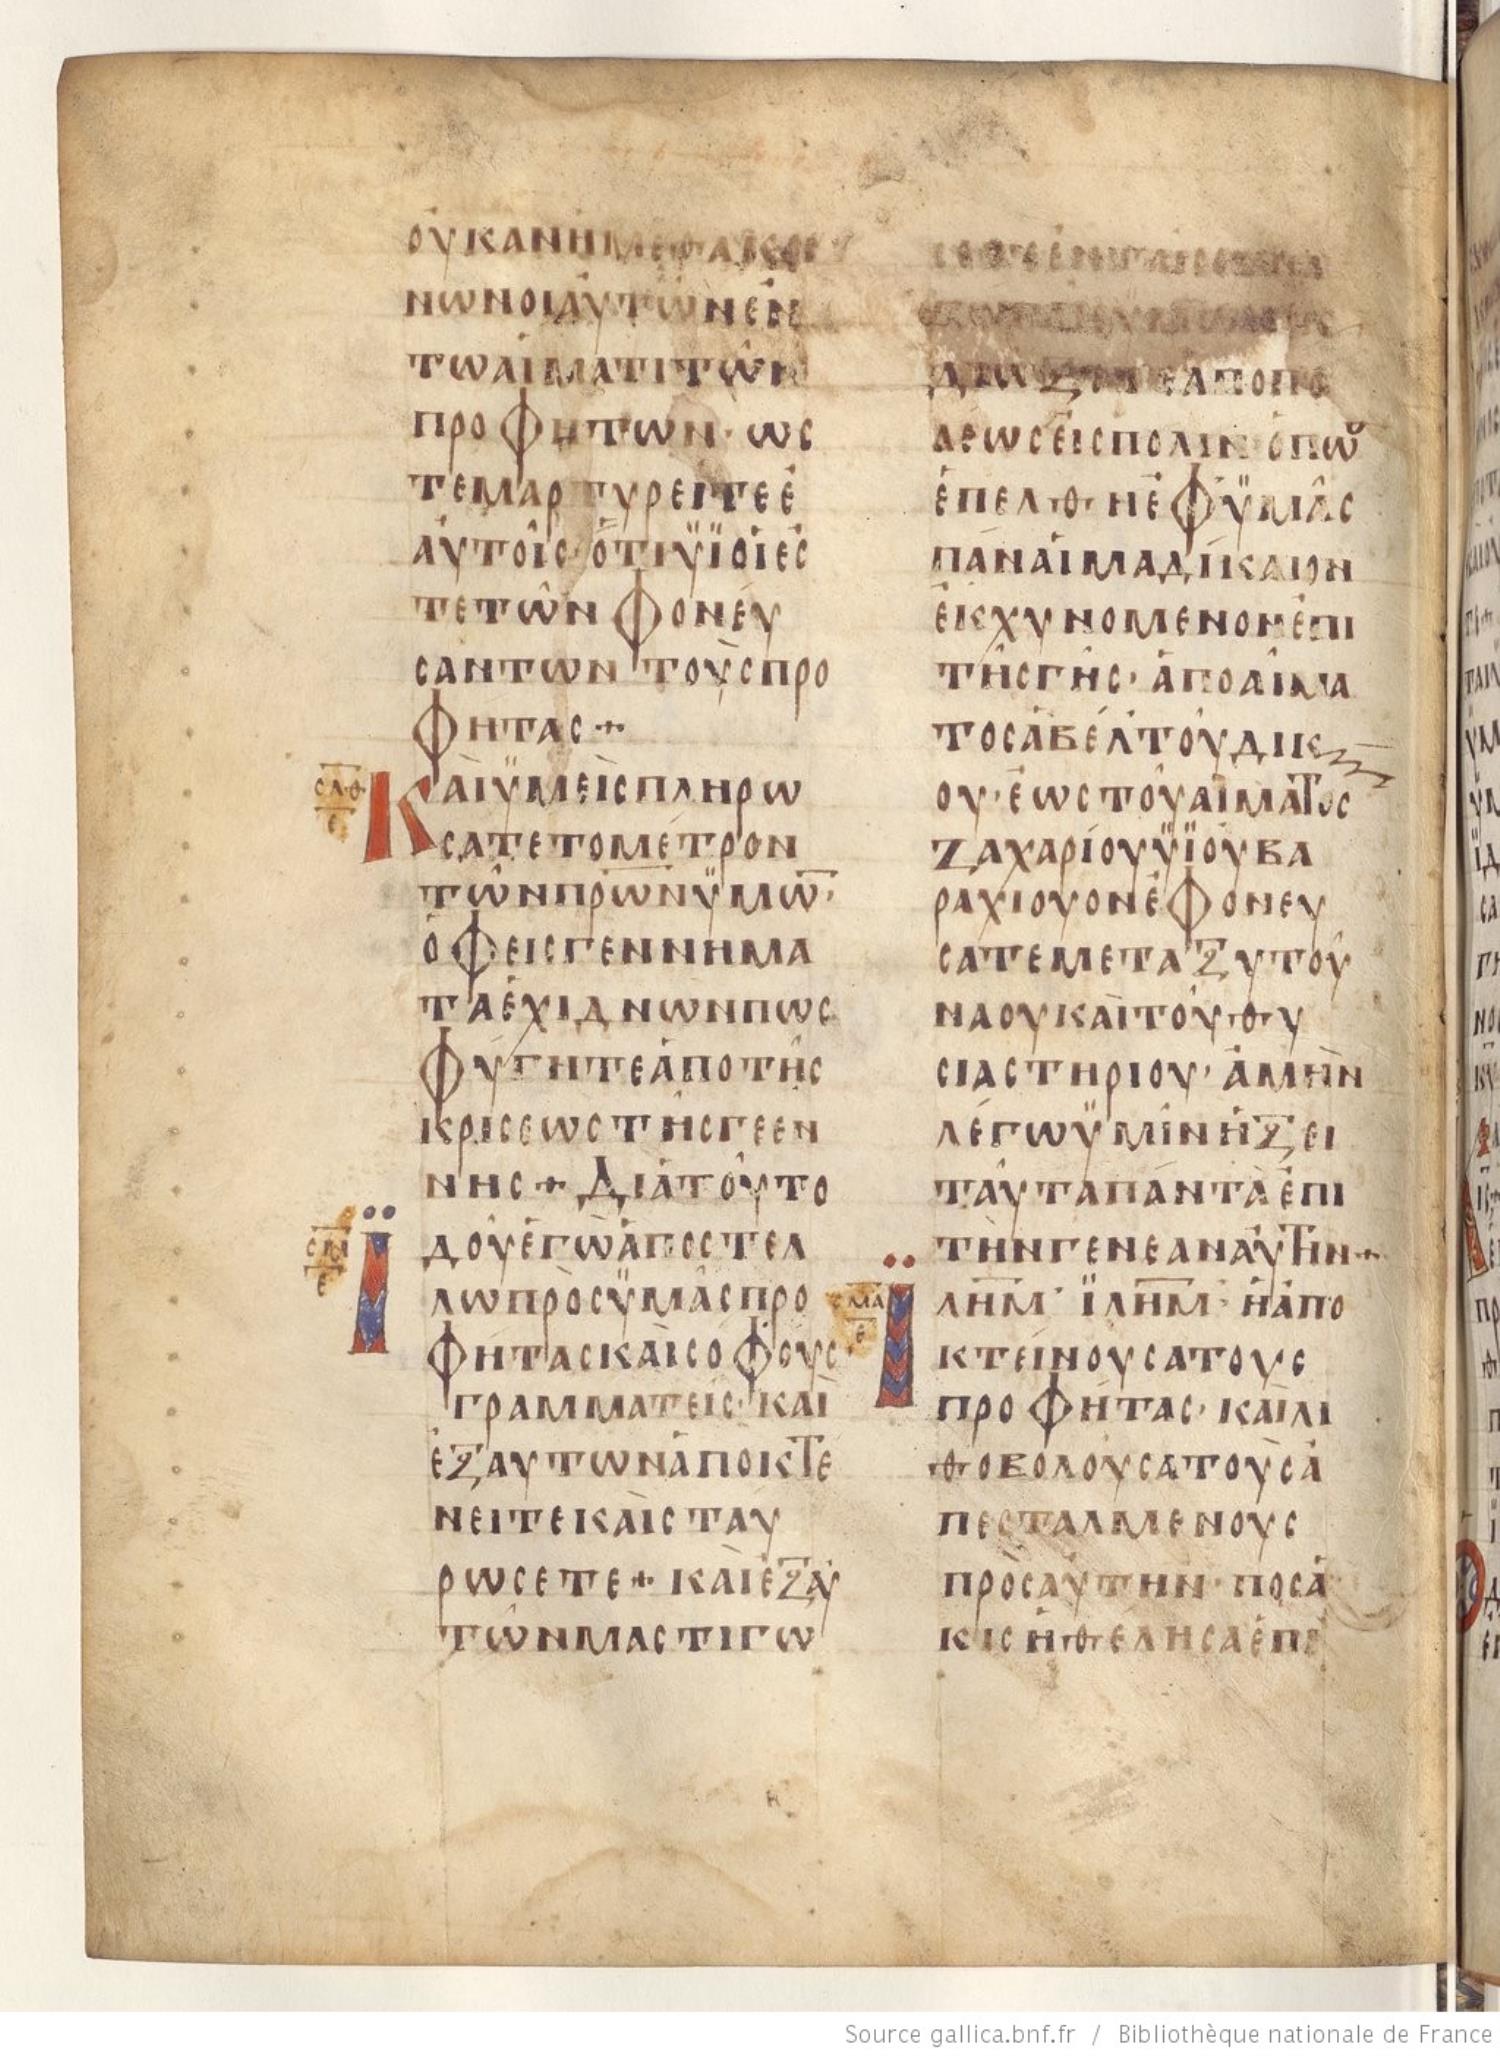 ΟΥΚΑΝΗΜΕΘΑΚΟΙ
ΝΩΝΟΙΑΥΤΩΝΕΝ
ΤΩΑΙΜΑΤΙΤΩΝ
ΠΡΟΦΗΤΩΝ· ΩC
ΤΕΜΑΡΤΥΡΕΙΤΕΕ
ΑΥΤΟΙC· ΟΤΙΫΪΟΙΕC
ΤΕΤΩΝΦΟΝΕΥ
CΑΝΤΩΝΤΟΥCΠΡΟ
ΦΗΤΑC+
CΛΘ
Ε
ΚΑΙΫΜΕΙCΠΛΗΡΩ
CΑΤΕΤΟΜΕΤΡΟΝ
ΤΩΝΠΡ̅Ω̅ΝΫΜΩ̅·
ΟΦΕΙCΓΕΝΝΗΜΑ
ΤΑΕΧΙΔΝΩΝΠΩC
ΦΥΓΗΤΕΑΠΟΤΗC
ΚΡΙCΕΩCΤΗCΓΕΕΝ
ΝΗC+ ΔΙΑΤΟΥΤΟ
CΜ
Ε
ΪΔΟΥΕΓΩΑΠΟCΤΕΛ
ΛΩΠΡΟCΫΜΑCΠΡΟ
ΦΗΤΑCΚΑΙCΟΦΟΥC·
ΓΡΑΜΜΑΤΕΙC· ΚΑΙ
ΕΞΑΥΤΩΝΑΠΟΚΤΕ
ΝΕΙΤΕΚΑΙCΤΑΥ
ΡΩCΕΤΕ+ ΚΑΙΕΞΑΥ
ΤΩΝΜΑCΤΙΓΩ
ΔΙΩΞΕΤΕΑΠΟΠΟ
ΛΕΩCΕΙCΠΟΛΙΝ· ΟΠΩC
ΕΠΕΛΘΗΕΦΫΜΑC
ΠΑΝΑΙΜΑΔΙΚΑΙΟΝ
ΕΚΧΥΝΟΜΕΝΟΝΕΠΙ
ΤΗCΓΗC· ΑΠΟΑΙΜΑ
ΤΟCΑΒΕΛΤΟΥΔΙΚ
ΟΥ· ΕΩCΤΟΥΑΙΜΑΤΟC
ΖΑΧΑΡΙΟΥΫΪΟΥΒΑ
ΡΑΧΙΟΥΟΝΕΦΟΝΕΥ
CΑΤΕΜΕΤΑΞΥΤΟΥ
ΝΑΟΥΚΑΙΤΟΥΘΥ
CΙΑCΤΗΡΙΟΥ· ΑΜΗΝ
ΛΕΓΩΫΜΙΝΗΞΕΙ
ΤΑΥΤΑΠΑΝΤΑΕΠΙ
ΤΗΝΓΕΝΕΑΝΑΥΤΗΝ+
CΜΑ
Ε
ΪΛΗ̅Μ̅· ΪΛΗ̅Μ̅· ΗΑΠΟ
ΚΤΕΙΝΟΥCΑΤΟΥC
ΠΡΟΦΗΤΑC· ΚΑΙΛΙ
ΘΟΒΟΛΟΥCΑΤΟΥCΑ
ΠΕCΤΑΛΜΕΝΟΥC
ΠΡΟCΑΥΤΗΝ· ΠΟCΑ
ΚΙCΗΘΕΛΗCΑΕΠΙ
Source gallica.bnf.fr / Bibliothèque nationale de France